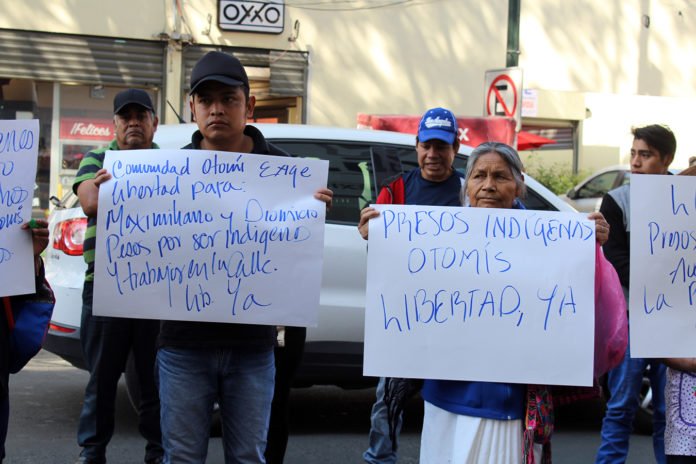 OXXO
¡Felices
Comunidad Otomí Exige
libertad para:
Maximiliano y Dionicio
Presos por ser indigena
y trabajar en la Calle.
lib. Ya
PRESOS INDÍGENAS
OTOMÍS
LIBERTAD, YA